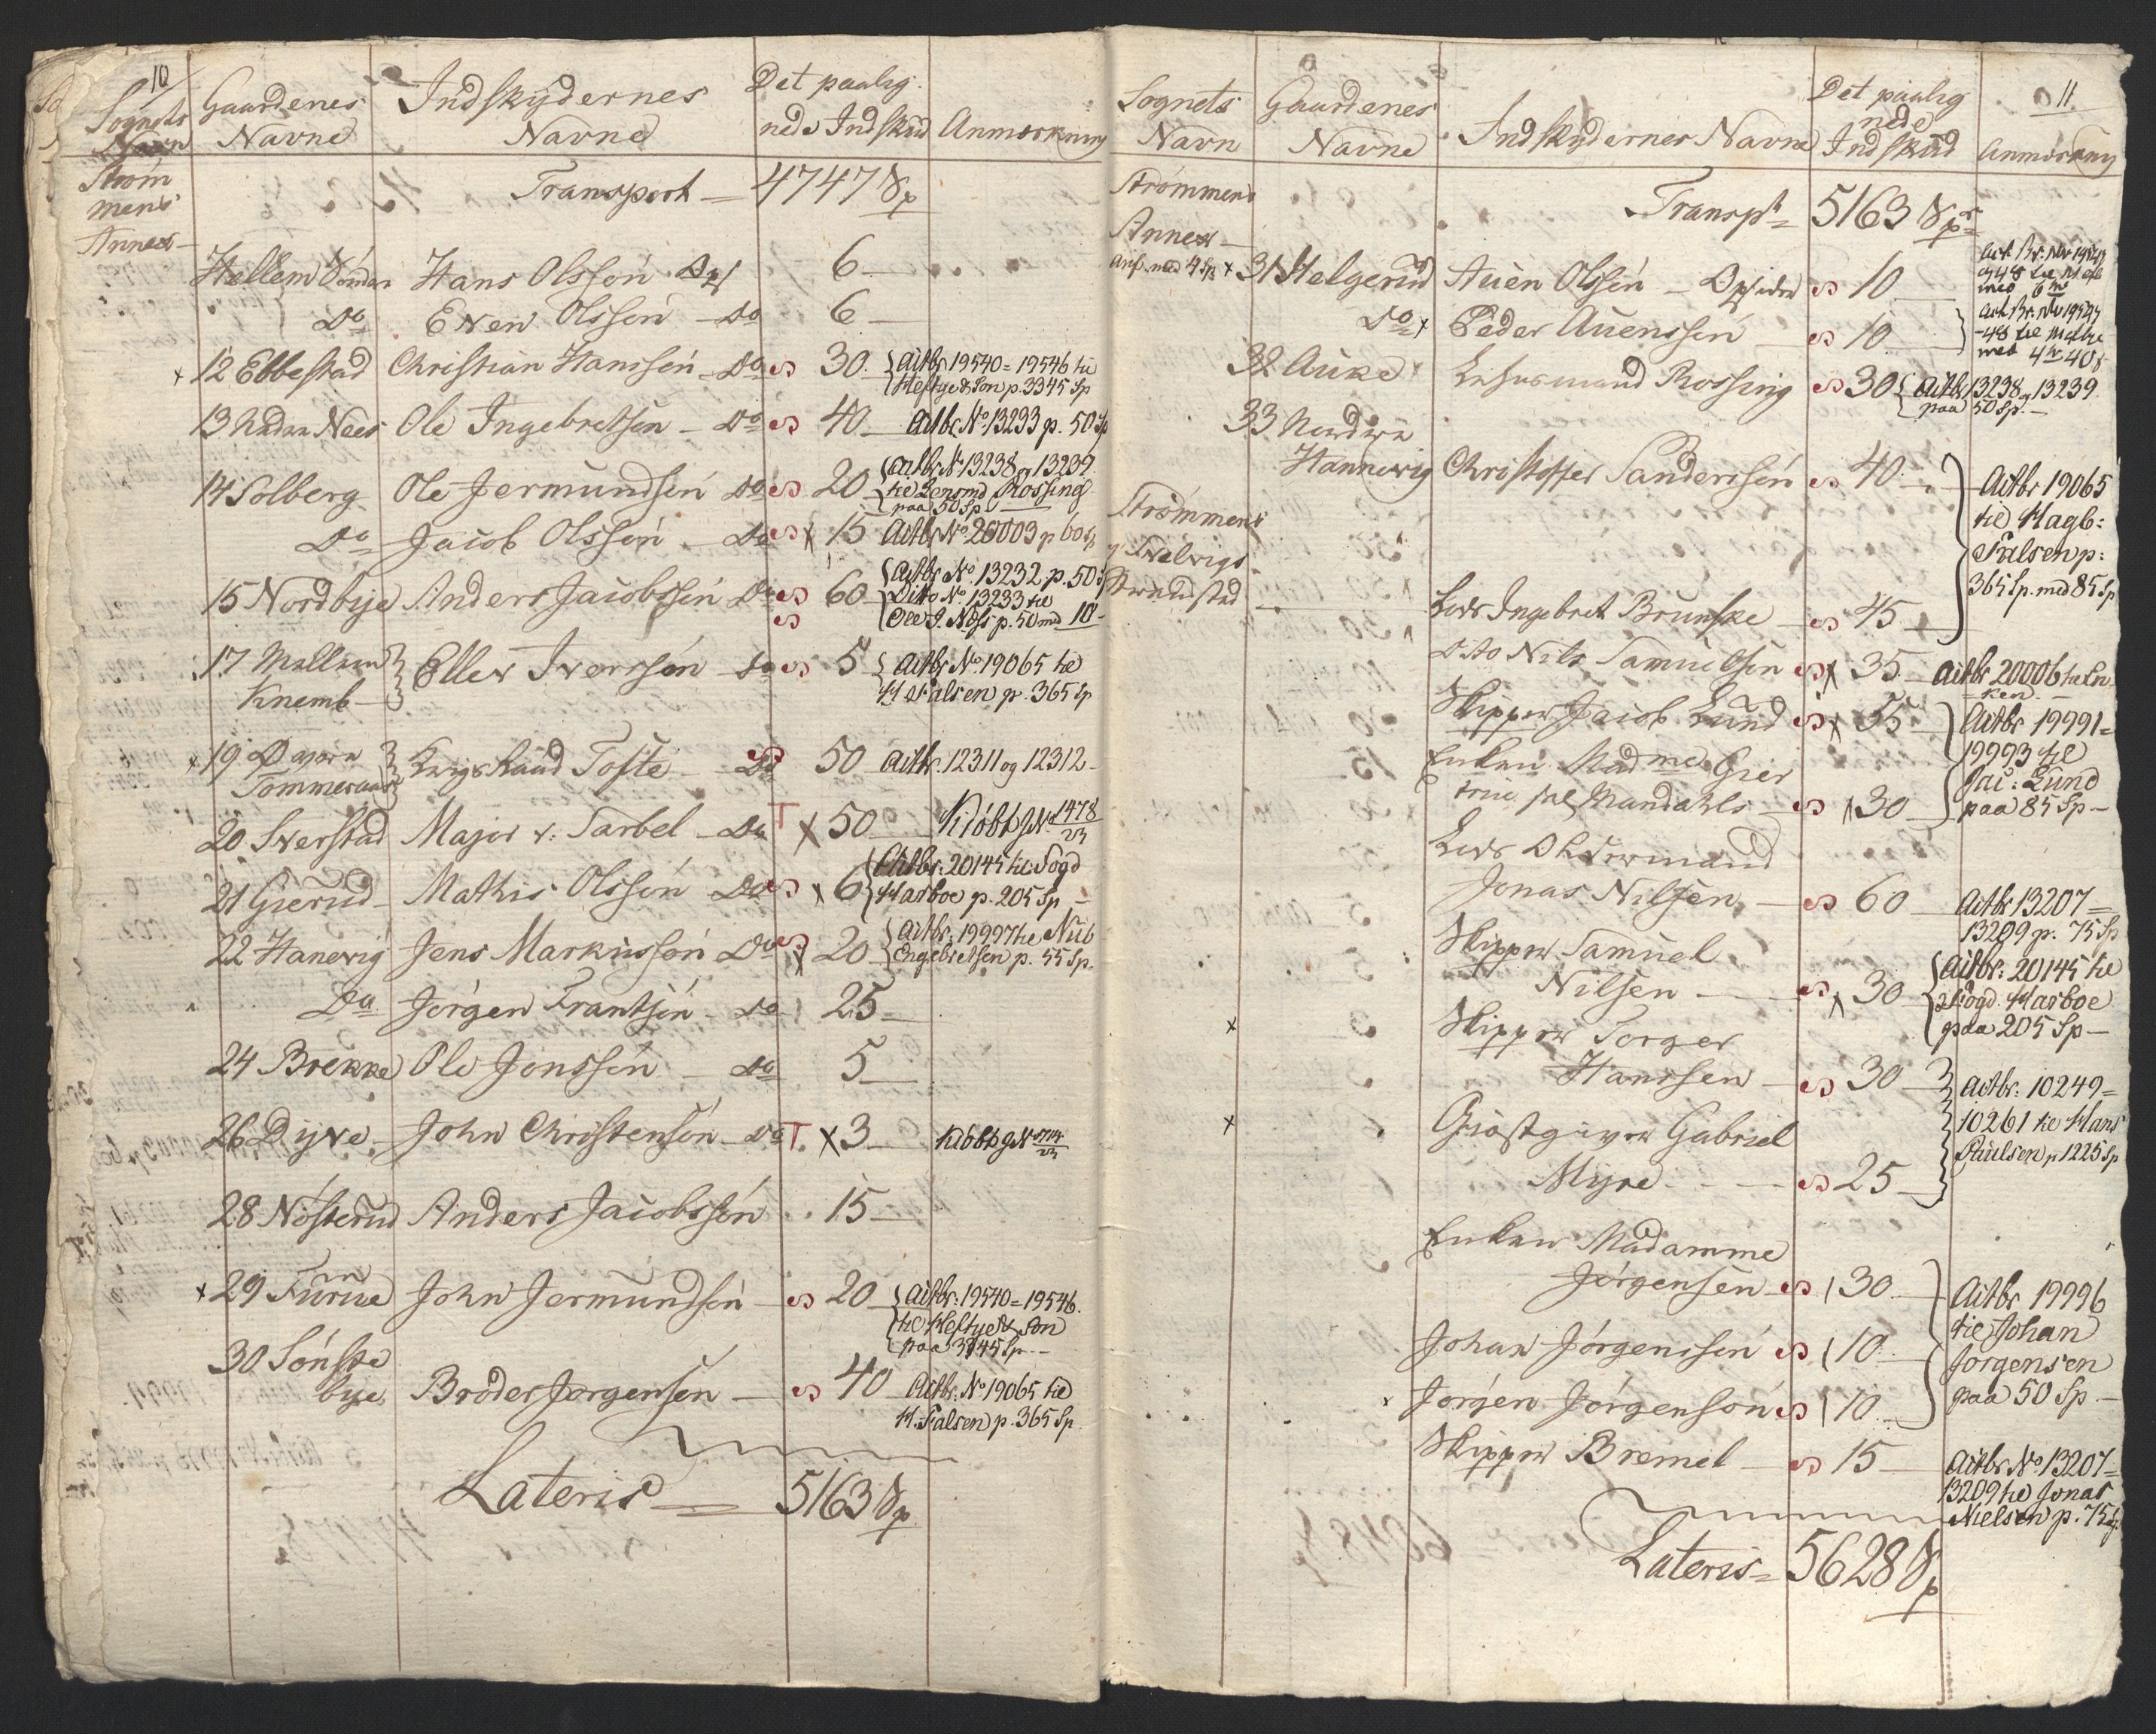 10
Sognets Navn
Gaardenes Navne
Indskydernes Navne
Det paalignede Indskud
Anmerkning
Strømmens Annex
Transport 4747 Sp
Hellem Hans Olssen 6
Do Even Olssen Do 6
x 12 Ebbestad Christian Hanssen Do 30 Actbr 19540 = 19546 til
Heftye & Søn p. 3345 Sp
13 Nees Ole Ingebretsen Do 40 Actbr No 13233 p. 50 Sp
14 Solberg Ole Jermundsen Do 20 Actbr No 13238 og 13239
til Rossing
paa 50 Sp
Do Jacob Olssen Do x 15 Actbr No 20003 p 60 Sp
15 Nordbye Anders Jacobssen Do 60 Actbr No 13232 p. 50 Sp
Ditto No 13233 til
Ole J. Næss p. 50 med 10
17 Mellem
Knemb Eller Iverssen Do 5 Actbr No 19065 til
H Falsen p. 365 Sp
x 19
Tommeraas Tofte Do 50 Actbr. 12311 og 12312
20 Sverstad Major v. Tarbel Do T x 50 Kiøbt No 1478
21 Gierud Mathis Olssen Do x 6 Actbr. 20145 til Fogd
Harboe p. 205 Sp
22 Hanevig Jens Markussen Do x 20 Actbr. 19997 til
Engebretsen p. 55 Sp.
Do Jørgen Frantsen Do 25
24 Brekke Ole Jonssen Do 5
26 Dyve John Christensen Do T. x 3 Kiøbt
28 Nøsterud Anders Jacobssen 15
x 29 Furue John Jermundsen 20 Actbr. 19540 = 19546.
til Heftye & Søn
paa 3345 Sp.
30 Sønste
bye Broder Jørgensen 40 Actbr. No 19065 til
H. Falsen p. 365 Sp
Lateris 5163 Sp
11
Sognets Navn
Gaardenes Navne
Indskydernes Navne
Det paalignede Indskud
Anmerkning
Strømmens
Annex
Transpt 5163 Sp
med 4 Sp x 31 Helgerud Auen Olssen Opsider 10
Do x Peder Auenssen 10
32 Auke Rossing 30 Actbr 13238 og 13239
paa 50 Sp.
33 Nordre
Hannevig Christoffer Sanderssen 40 Actbr 19065
til Hagb:
Falsen p:
365 Sp. med 85 Sp
Strømmens
og Svelvigs
Ingebret Brunske 45
Dito Nils Samuelsen x 35 Actbr 20006 til En-
ken.
Skipper Jacob Lund x 55 Actbr 19991 =
19993 til
Jac: Lund
paa 85 Sp
Enken Madme Gier
Mandahls 30
Jonas Nilsen 60 Actbr 13207 =
13209 p. 75 Sp
Skipper Samuel
Nilsen x 30 Actbr. 20145 til
Fogd. Harboe
paa 205 Sp
x Skipper Torger
Hanssen 30 Actbr. 10249 =
10261 til Hans
Paulsen p 1225 Sp
x Giæstgiver Gabriel
Myre 25
Enken Madamme
Jørgensen 30 Actbr 19996
til Johan
Jørgensen
paa 50 Sp
Johan Jørgenssen 10
Jørgen Jørgenson 10
Skipper Bremel 15 Actbr No 13207 =
13209 til Jonas
Nielsen p. 75 Sp.
Lateris 5628 Sp